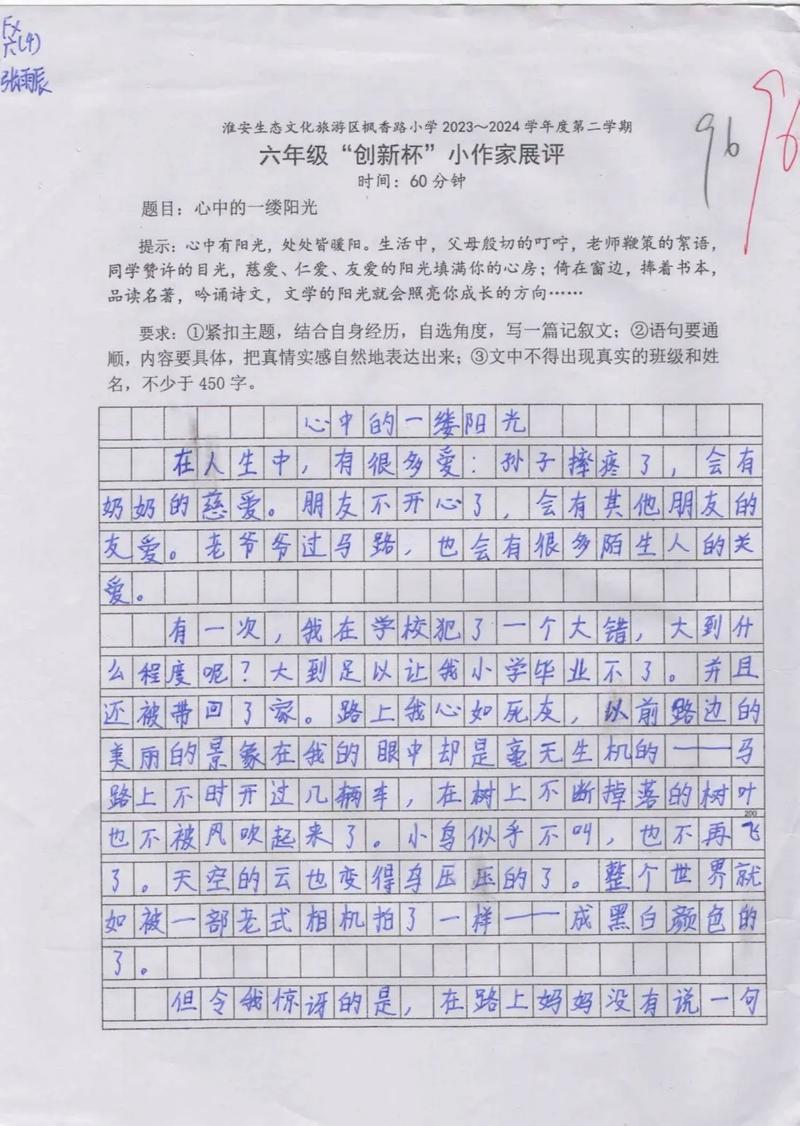 六(4)
张雨辰
96
96
淮安生态文化旅游区枫香路小学2023～2024学年度第二学期
六年级“创新杯”小作家展评
时间：60分钟
题目：心中的一缕阳光
提示：心中有阳光，处处皆暖阳。生活中，父母殷切的叮咛，老师鞭策的絮语，
同学赞许的目光，慈爱、仁爱、友爱的阳光填满你的心房；倚在窗边，捧着书本，
品读名著，吟诵诗文，文学的阳光就会照亮你成长的方向……
要求：①紧扣主题，结合自身经历，自选角度，写一篇记叙文；②语句要通
顺，内容要具体，把真情实感自然地表达出来；③文中不得出现真实的班级和姓
名，不少于450字。
心中的一缕阳光
在人生中，有很多爱：孙子摔疼了，会有
奶奶的慈爱。朋友不开心了，会有其他朋友的
友爱。老爷爷过马路，也会有很多陌生人的关
爱。
有一次，我在学校犯了一个大错，大到什
么程度呢？大到足以让我小学毕业不了。并且
还被带回了家。路上我心如死灰，以前路边的
美丽的景象在我的眼中却是毫无生机的——马
路上不时开过几辆车，在树上不断掉落的树叶
也不被风吹起来了。小鸟似乎不叫，也不再飞
200
了。天空的云也变得乌压压的了。整个世界就
如被一部老式相机拍了一样——成黑白颜色的
了。
但令我惊讶的是，在路上妈妈没有说一句